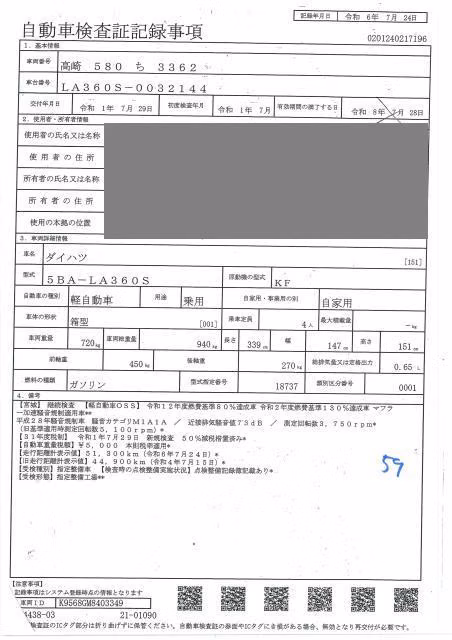 記録年月日 令和 6年 7月 24日
自動車検査証記録事項
0201240217196
1. 基本情報
車両番号 高崎 580 ち 3362
車台番号 LA360S-0032144
交付年月日 令和 1年 7月 29日 初度検査年月 令和 1年 7月 有効期間の満了する日 令和 8年 7月 28日
2. 使用者・所有者情報
使用者の氏名又は名称
使用者の住所
所有者の氏名又は名称
所有者の住所
使用の本拠の位置
3. 車両詳細情報
車名 ダイハツ [151]
型式 5BA-LA360S 原動機の型式 KF
自動車の種別 軽自動車 用途 乗用 自家用・事業用の別 自家用
車体の形状 箱型 [001] 乗車定員 4人 最大積載量 -kg
車両重量 720kg 車両総重量 940kg 長さ 339cm 幅 147cm 高さ 151cm
前軸重 450kg 後軸重 270kg 総排気量又は定格出力 0.65L
燃料の種類 ガソリン 型式指定番号 18737 類別区分番号 0001
4. 備考
【宮城】 継続検査 【軽自動車OSS】 令和12年度燃費基準80%達成車 令和2年度燃費基準130%達成車 マフラ
ー加速騒音規制適用車**
平成28年騒音規制車 騒音カテゴリM1A1A / 近接排気騒音値73dB / 測定回転数3,750rpm*
(旧基準適用時測定回転数5,100rpm)*
【31年度税制】 令和1年7月29日 新規検査 50%減税相当済み*
【自動車重量税額】¥5,000 本則税率適用*
【走行距離計表示値】51,300km(令和6年7月24日)*
【旧走行距離計表示値】44,900km(令和4年7月15日)*
【受検種別】指定整備車 【検査時の点検整備実施状況】点検整備記録簿記載あり*
【受検形態】指定整備工場**
59
【注意事項】
記載事項はシステム登録時点の情報となります
車両ID K9568GM8403349
4438-03 21-01090
検査証のICタグ部分は折り曲げずに保管ください。自動車検査証の券面やICタグに8損がある場合、無効となり再交付が必要です。